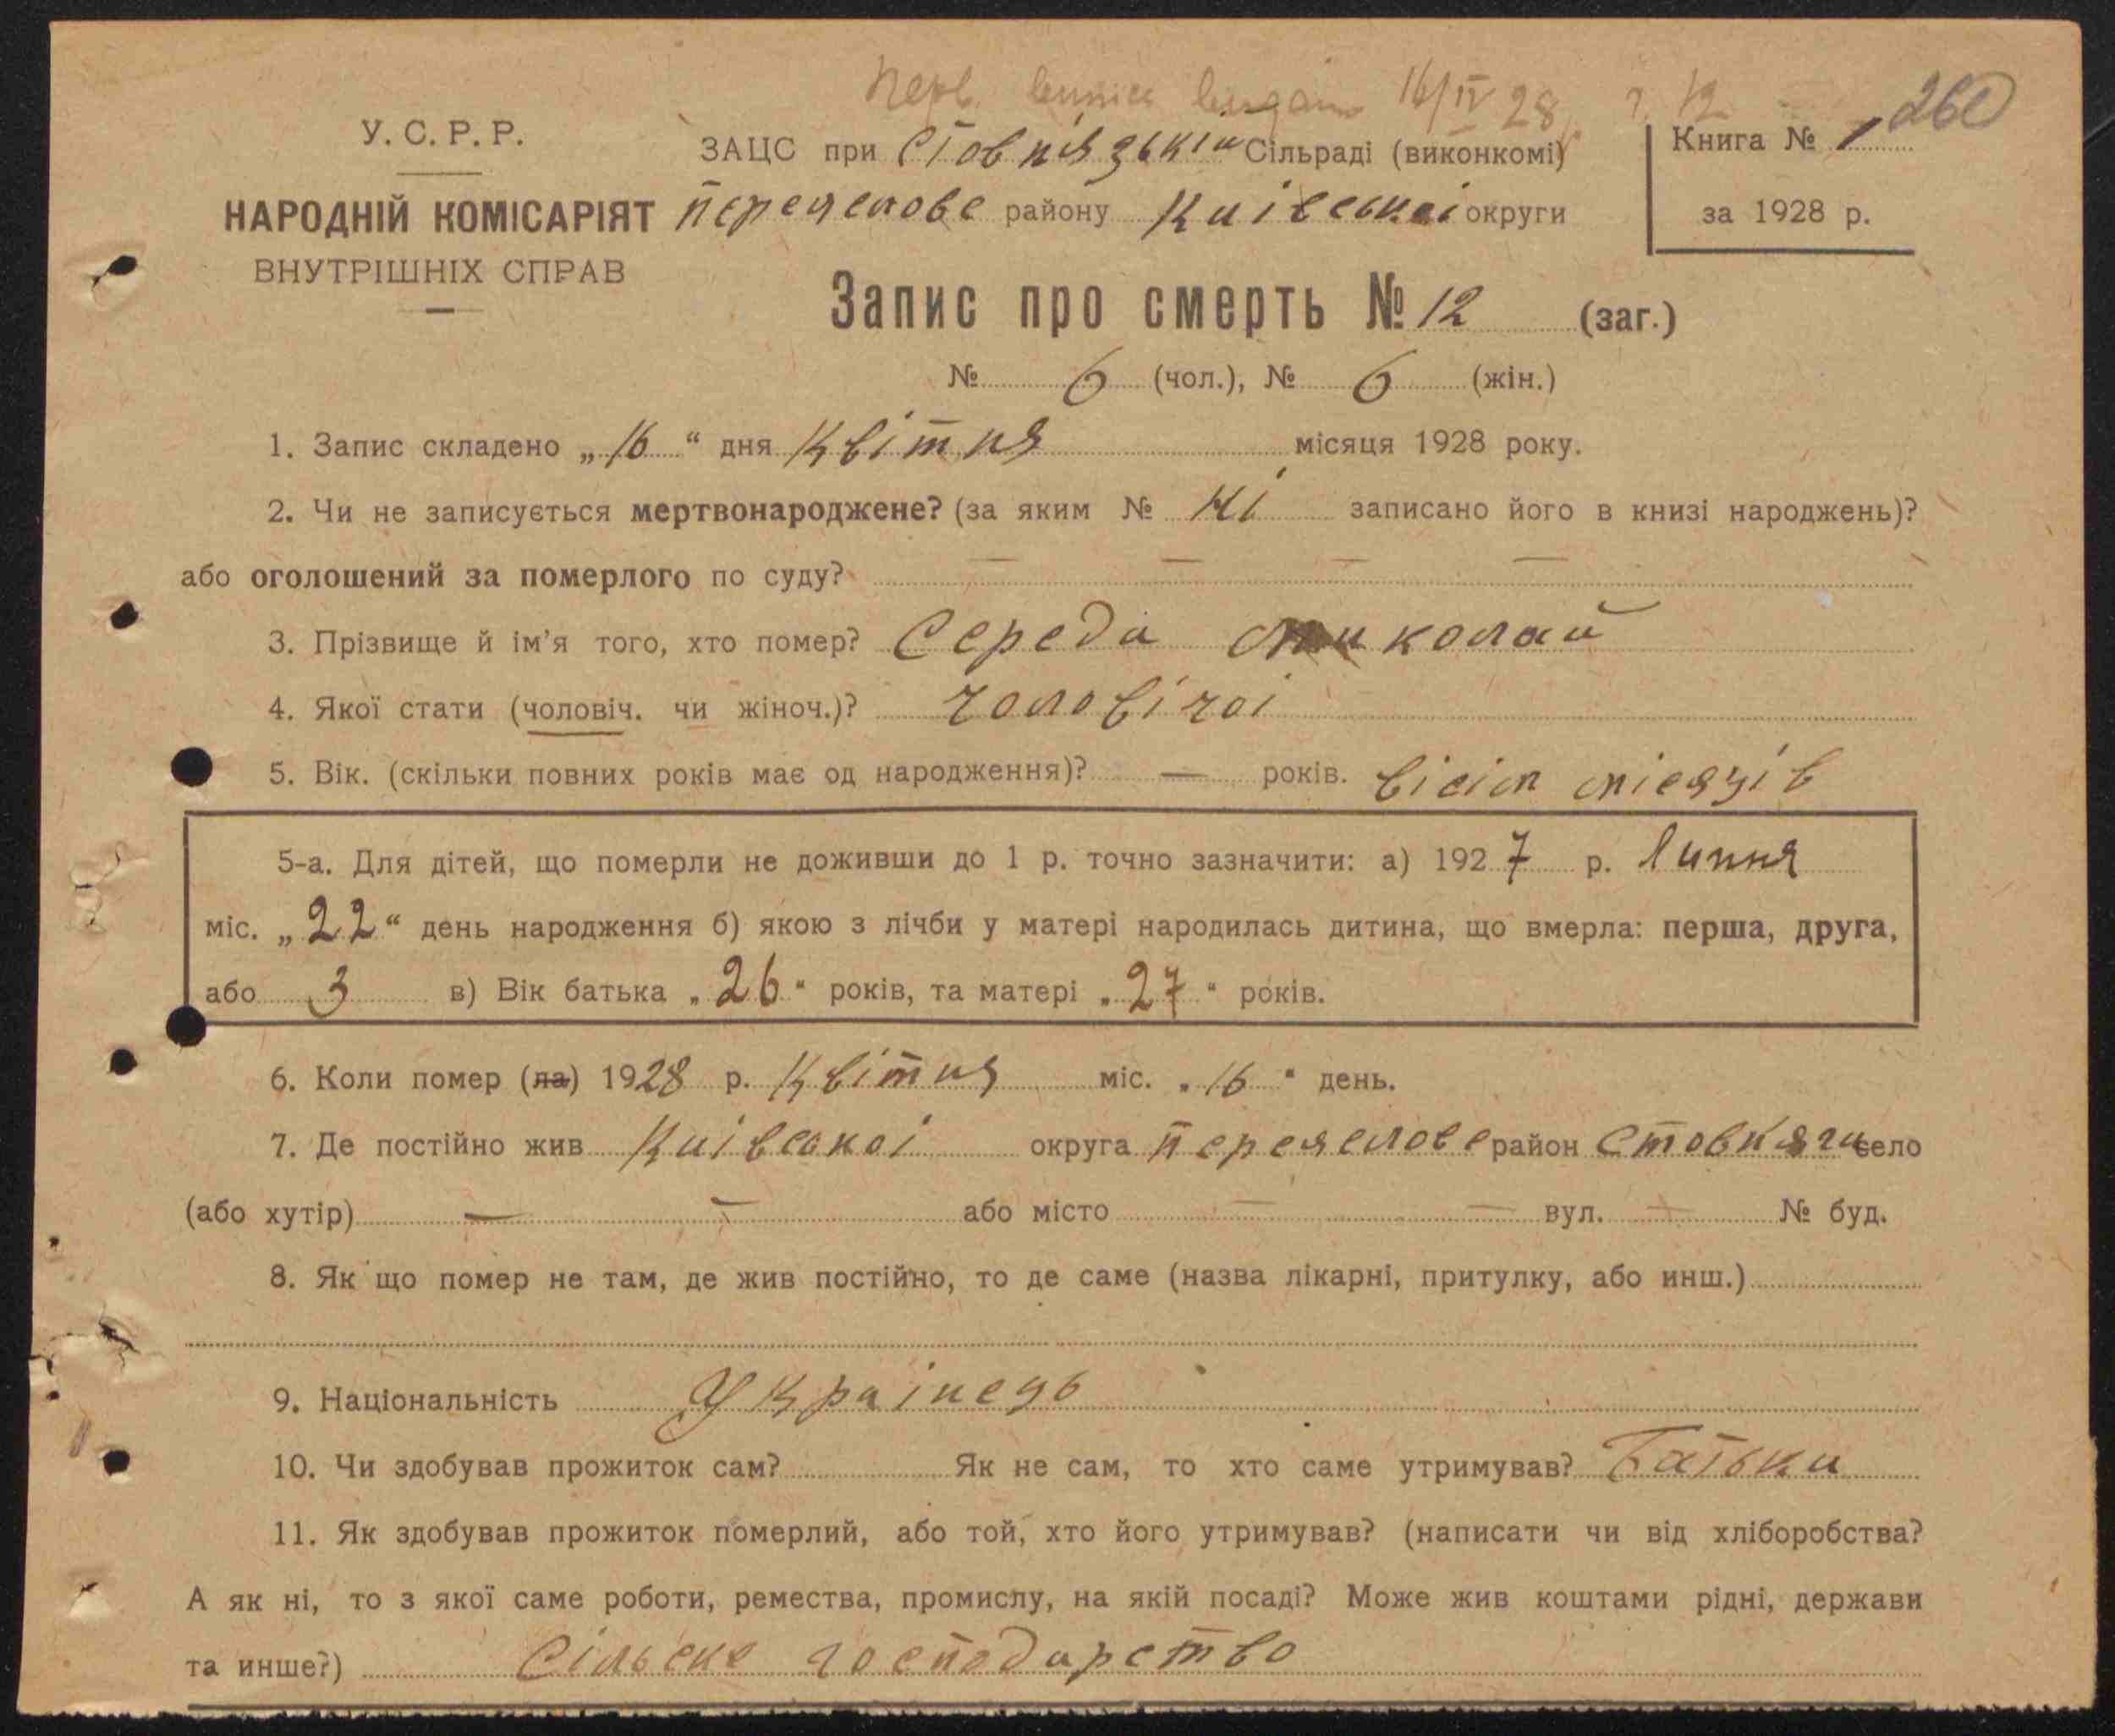 Перв. випис видан 16/IV 28 р. 12
260
У. С. Р. Р.
НАРОДНІЙ КОМІСАРІЯТ
ВНУТРІШНІХ СПРАВ
ЗАЦС при Стовпʼязькій Сільраді (виконкомі)
переяслове району Київської округи
Книга № 1
за 1928 р.
Запис про смерть № 12 (заг.)
№ 6 (чол.), № 6 (жін.)
1. Запис складено „16“ дня Квітня місяця 1928 року.
2. Чи не записується мертвонароджене? (за яким № Ні записано його в книзі народжень)?
або оголошений за померлого по суду? — — — —
3. Прізвище й ім'я того, хто помер? Середа Миколай
4. Якої стати (чоловіч. чи жіноч.)? чоловічоі
5. Вік. (скільки повних років має од народження)? — років. вісім місяців
5-а. Для дітей, що померли не доживши до 1 р. точно зазначити: а) 1927 р. Липня
міс. „22“ день народження б) якою з лічби у матері народилась дитина, що вмерла: перша, друга,
або 3 в) Вік батька „26“ років, та матері „27“ років.
6. Коли помер (ла) 1928 р. Квітня міс. „16“ день.
7. Де постійно жив Киівськоі округа переяслове район Стовпяги село
(або хутір) — — або місто — — вул. — № буд.
8. Як що помер не там, де жив постійно, то де саме (назва лікарні, притулку, або инш.)
9. Національність Украінець
10. Чи здобував прожиток сам? Як не сам, то хто саме утримував? Батьки
11. Як здобував прожиток померлий, або той, хто його утримував? (написати чи від хліборобства?
А як ні, то з якої саме роботи, ремества, промислу, на якій посаді? Може жив коштами рідні, держави
та инше?) Сільске господарство